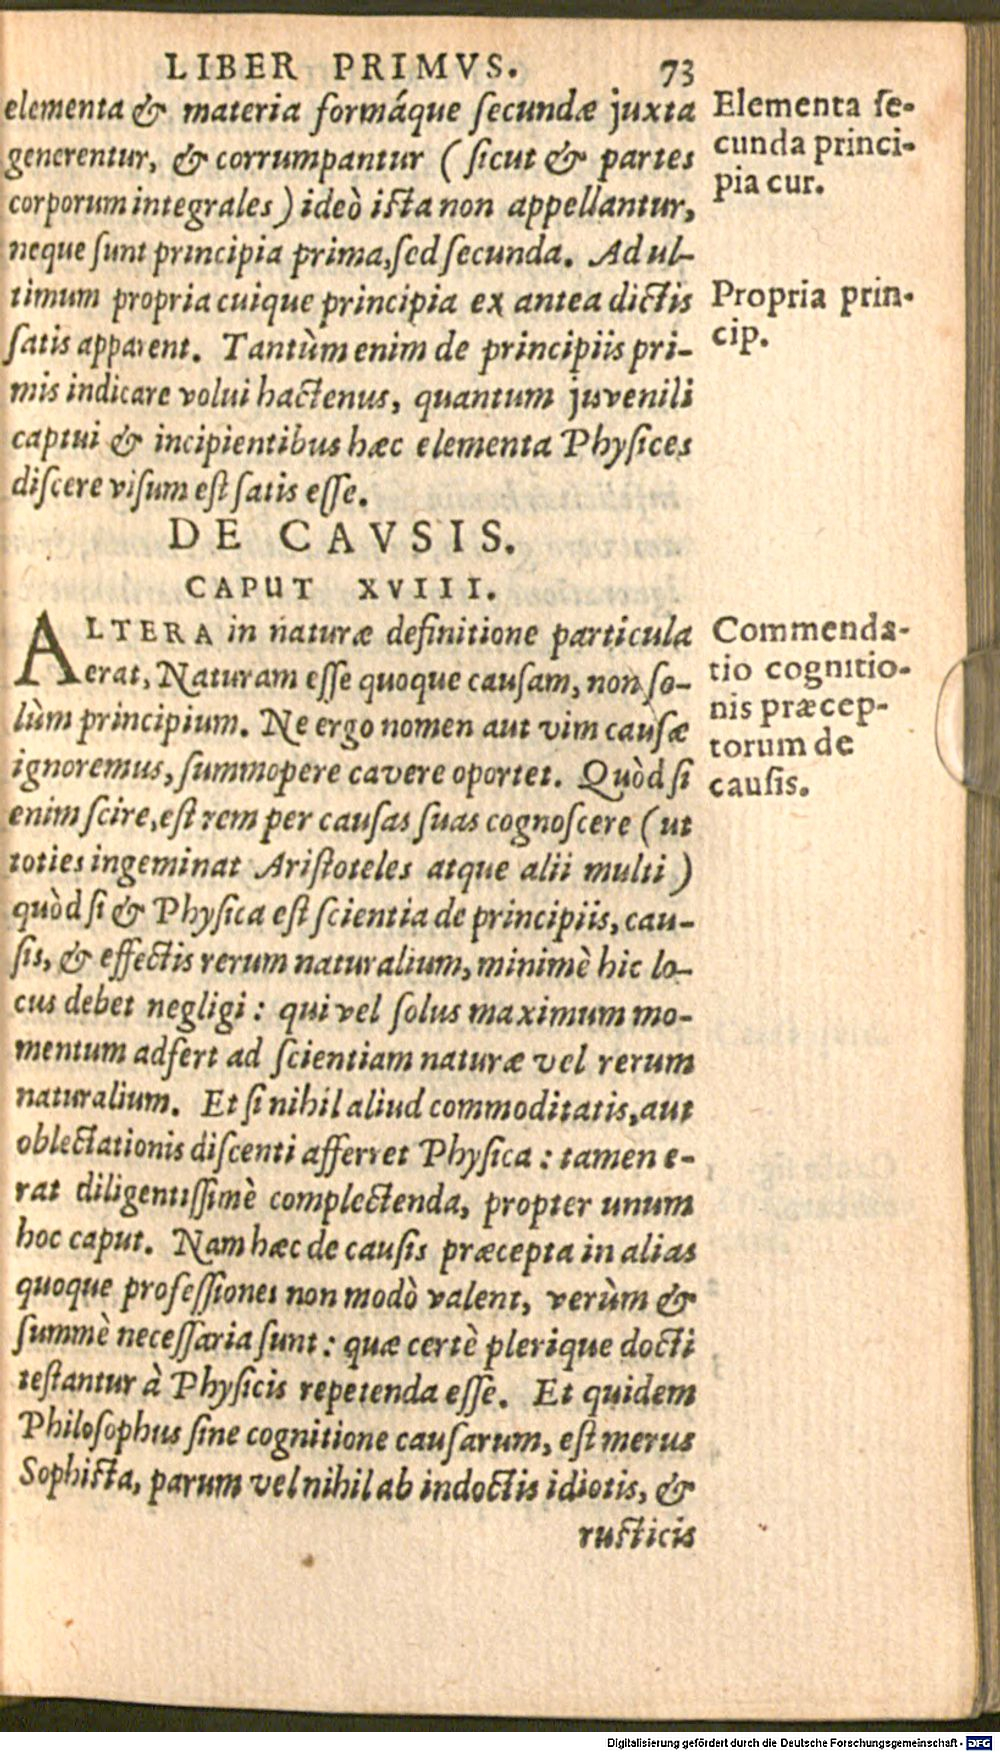 LIBER PRIMVS. 73
elementa & materia formáque secundæ juxta
generentur, & corrumpantur (sicut & partes
corporum integrales) ideò ista non appellantur,
neque sunt principia prima, sed secunda. Ad ul-
timum propria cuique principia ex antea dictis
satis apparent. Tantùm enim de principiis pri-
mis indicare volui hactenus, quantum juvenili
captui & incipientibus hæc elementa Physices
discere visum est satis esse.
Elementa se-
cunda princi-
pia cur.
Propria prin-
cip.
DE CAVSIS.
CAPUT XVIII.
ALTERA in naturæ definitione particula
erat, Naturam esse quoque causam, non so-
lùm principium. Ne ergo nomen aut vim causæ
ignoremus, summopere cavere oportet. Quòd si
enim scire, est rem per causas suas cognoscere (ut
toties ingeminat Aristoteles atque alii multi)
quòd si & Physica est scientia de principiis, cau-
sis, & effectis rerum naturalium, minimè hic lo-
cus debet negligi: qui vel solus maximum mo-
mentum adfert ad scientiam naturæ vel rerum
naturalium. Et si nihil aliud commoditatis, aut
oblectationis discenti afferret Physica: tamen e-
rat diligentissimè complectenda, propter unum
hoc caput. Nam hæc de causis præcepta in alias
quoque professiones non modò valent, verùm &
summè necessaria sunt: quæ certè plerique docti
testantur à Physicis repetenda esse. Et quidem
Philosophus sine cognitione causarum, est merus
Sophista, parum vel nihil ab indoctis idiotis, &
rusticis
Commenda-
tio cognitio-
nis præcep-
torum de
causis.
Digitalisierung gefördert durch die Deutsche Forschungsgemeinschaft - DFG